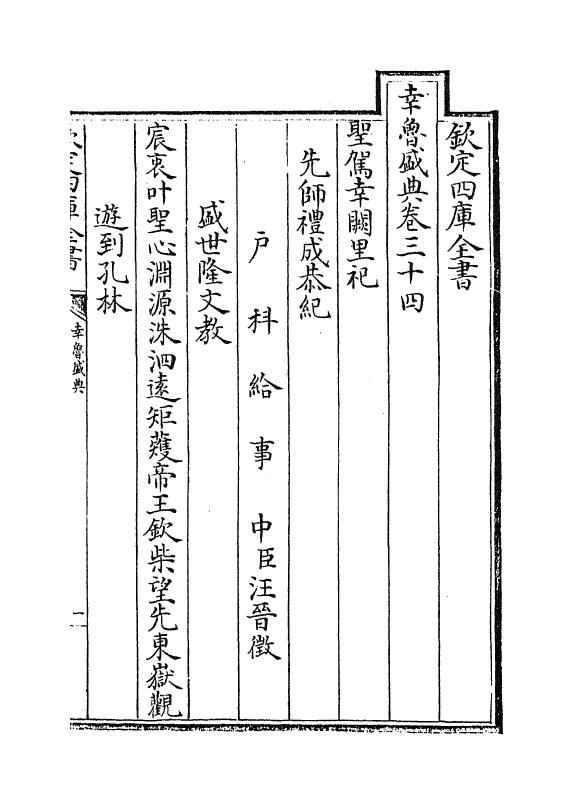 欽定四庫全書
幸魯盛典卷三十四
聖駕幸闕里祀
先師禮成恭紀
戶科給事中臣汪晉徵
盛世隆文教
宸衷叶聖心淵源洙泗遠矩蒦帝王欽柴望先東嶽觀
遊到孔林
欽定四庫全書
幸魯盛典
一